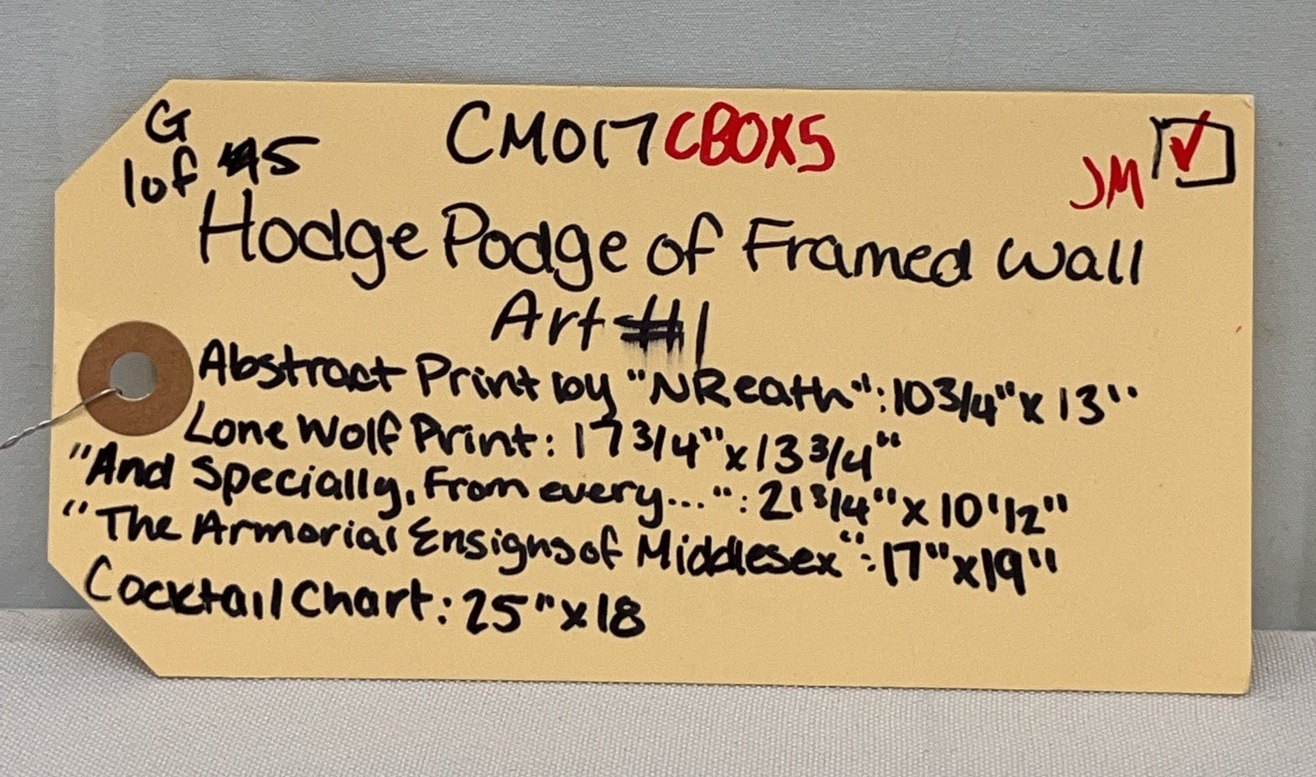 G
1 of 5
CM017 CBOX5
JM
Hodge Podge of Framed Wall
Art #1
Abstract Print by "NReath": 10 3/4" x 13"
Lone Wolf Print: 17 3/4" x 13 3/4"
"And Specially, From every...": 21 3/4" x 10 1/2"
"The Armorial Ensigns of Middlesex": 17" x 19"
Cocktail Chart: 25" x 18